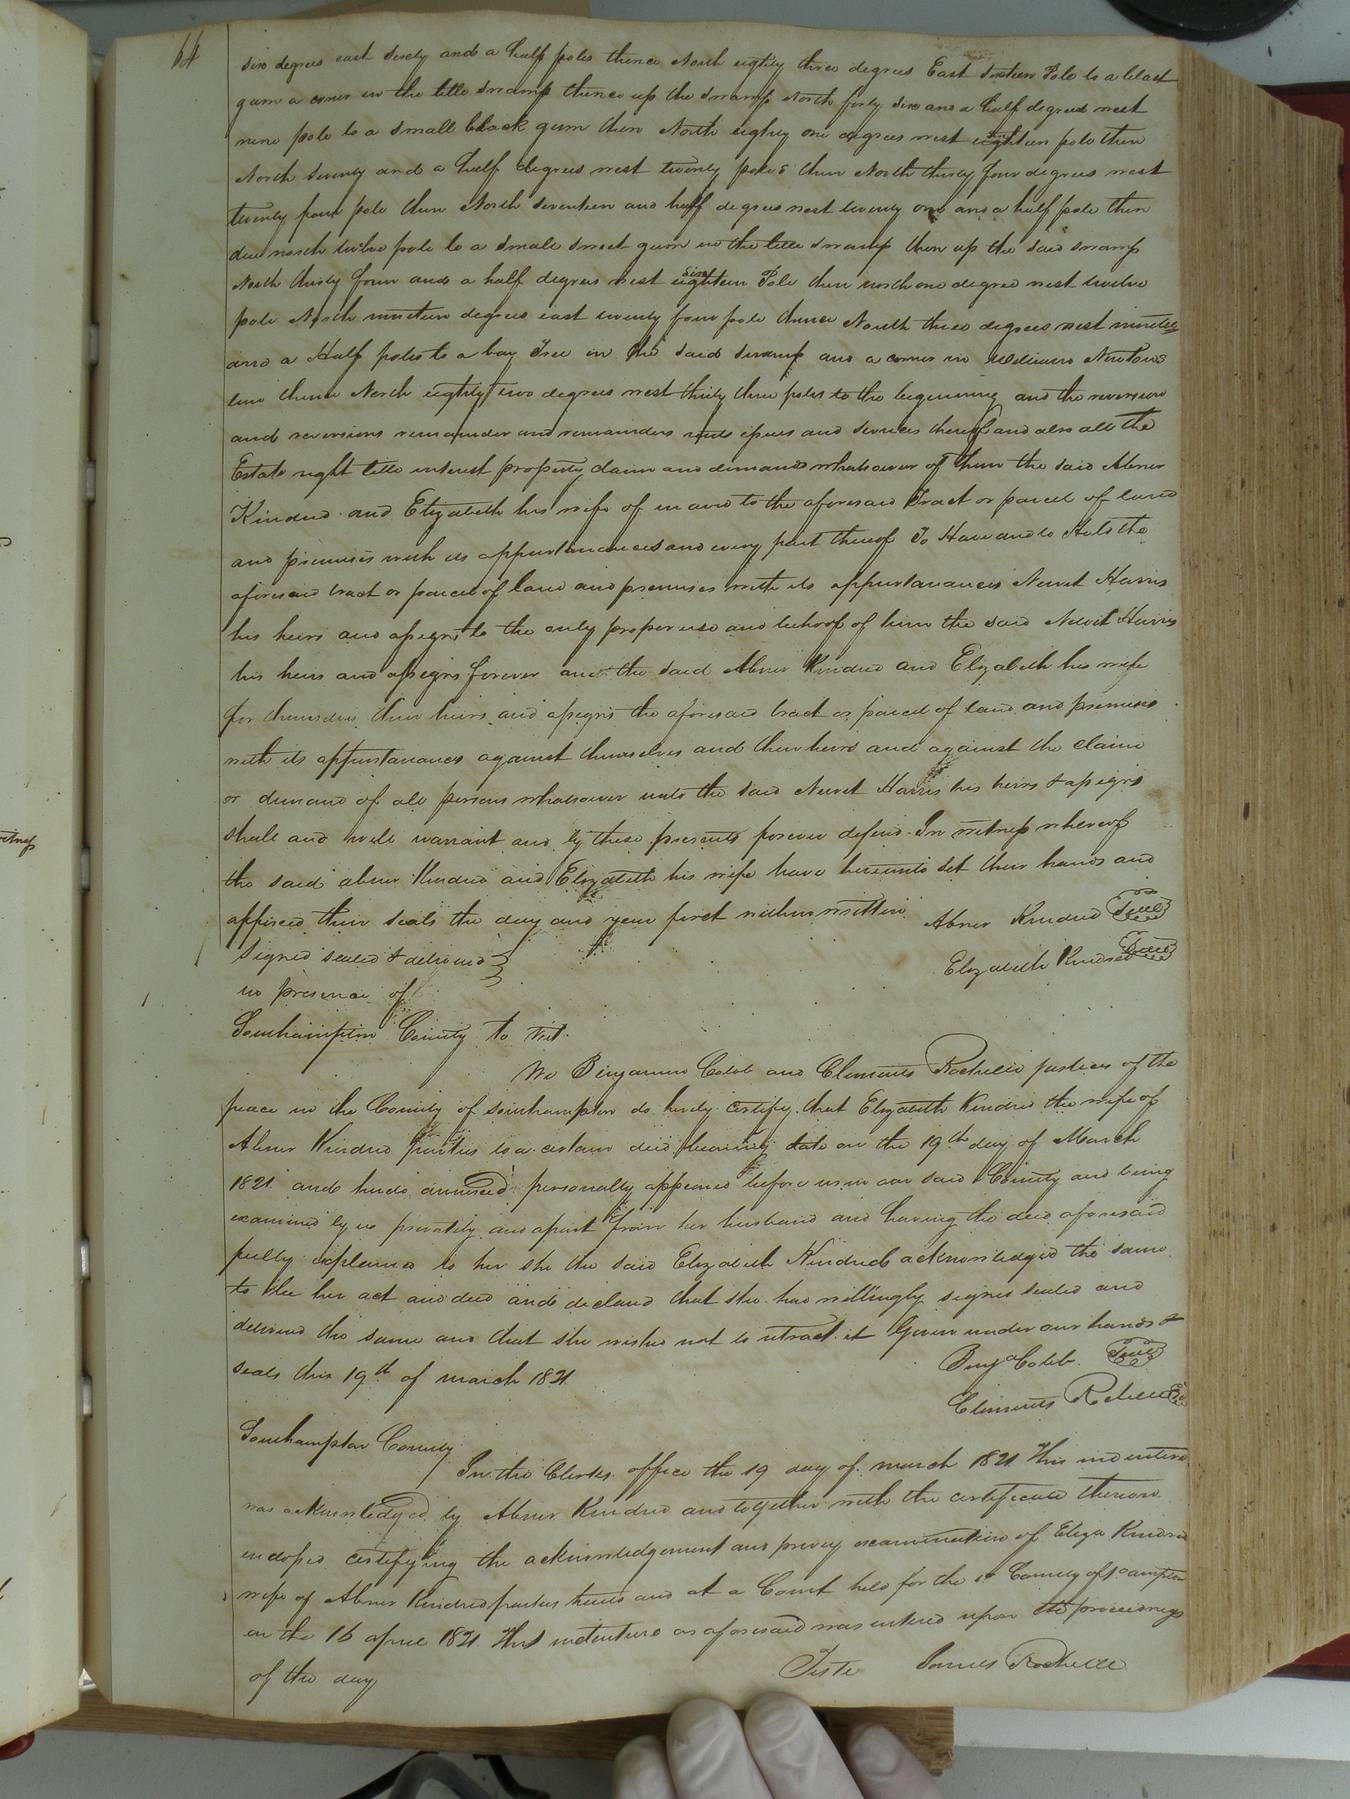 64
six degrees east seventy and a half poles thence North eighty three degrees East sixteen Pole to a black
gum a corner in the little swamp thence up the swamp North forty six and a half degrees west
nine pole to a small black gum then North eighty one degrees west eighteen pole then
North seventy and a half degrees west twenty poles then North thirty four degrees west
twenty four pole then North seventeen and half degrees west twenty one and a half pole then
due north twelve pole to a small sweet gum in the little swamp then up the said swamp
North thirty four and a half degrees west sixteen Pole then north one degree west twelve
pole North nineteen degrees east twenty four pole thence North three degrees west nineteen
and a Half poles to a bay Tree in the said swamp and a corner in Williams Newtons
line thence North eighty two degrees west thirty three poles to the beginning and the reversion
and reversions remainder and remainders rents issues and services thereof and also all the
Estate right title interest property claim and demand whatsoever of them the said Abner
Kindred and Elizabeth his wife of in and to the aforesaid Tract or parcel of land
and premises with its appurtenances and every part thereof To Have and to Hold the
aforesaid tract or parcel of land and premises with its appurtanances Newit Harris
his heirs and assigns to the only proper use and behoof of him the said Newit Harris
his heirs and assigns forever and the said Abner Kindred and Elizabeth his wife
for themselves their heirs and assigns the aforesaid tract or parcel of land and premises
with its appurtanances against themselves and their heirs and against the claim
or demand of all persons whatsoever unto the said Newit Harris his heirs & assigns
shall and will warrant and by these presents forever defend. In witness whereof
the said abner Kindred and Elizabeth his wife have hereunto set their hands and
affixed their seals the day and year first within written Abner Kindred Seal
Signed sealed & delivered Elizabeth Kindred Seal
in presence of
Southampton County to Wit.
We Benjamin Cobb and Clements Rochelle justices of the
peace in the County of Southampton do hereby certify that Elizabeth Kindred the wife of
Abner Kindred parties to a certain deed bearing date on the 19th day of March
1821 and hereto annexed personally appeared before us in our said County and being
examined by us privately and apart from her husband and having the deed aforesaid
fully explained to her she the said Elizabeth Kindred acknowledged the same
to be her act and deed and declared that she had willingly signed sealed and
delivered the same and that she wished not to retract it Given under our hands &
seals this 19th of march 1821 Benja Cobb Seal
Clements Rochelle
Southampton County
In the Clerks office the 19 day of march 1821 This indenture
was acknowledged by Abner Kindred and together with the certificate thereon
indorsed certifying the acknowledgement and privy examination of Eliza Kindred
wife of Abner Kindred parties hereto and at a Court held for the sd County of Sohampton
on the 16 april 1821 This indenture as aforesaid was entered upon the proceedings
of the day Teste James Rochelle